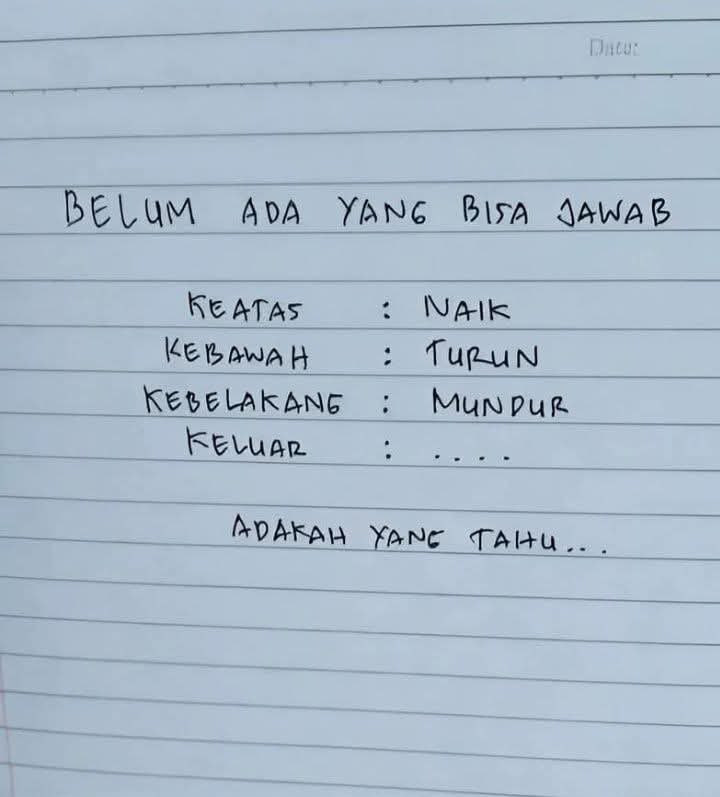 Date:
BELUM ADA YANG BISA JAWAB
KEATAS : NAIK
KEBAWAH : TURUN
KEBELAKANG : MUNDUR
KELUAR : ....
ADAKAH YANG TAHU...